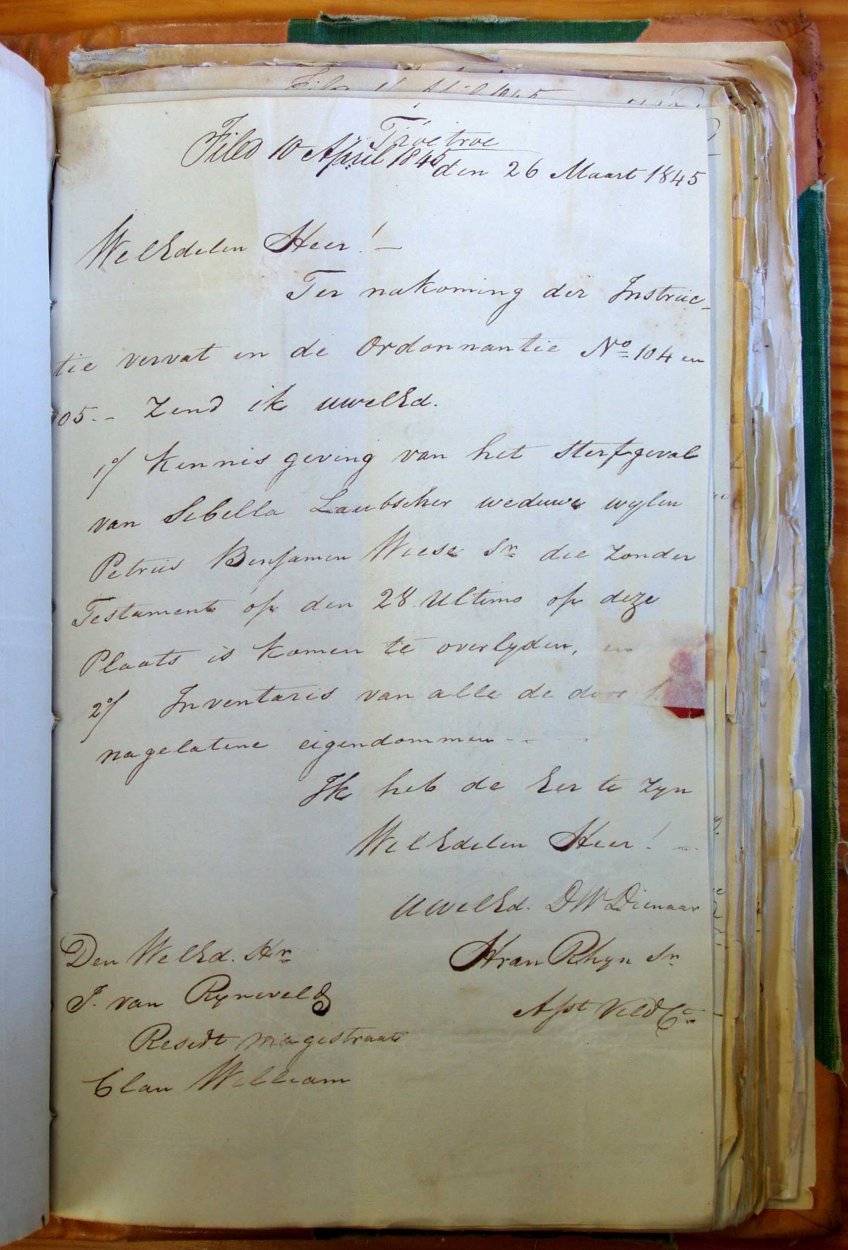 Troetroe
Filed 10 April 1845
den 26 Maart 1845
WelEdelen Heer! —
Ter nakoming der Instruc-
tie vervat in de Ordonnantie No 104 en
05. - Zend ik UwelEd.
1o/ Kennis geving van het sterfgeval
van Sibella Laubscher weduwe wylen
Petrus Benjamen Weese Sr die zonder
Testament op den 28 Ultimo op deze
Plaats is komen te overlyden, en
2o/ Inventaris van alle de door
nagelatene eigendommen - -
Ik heb de Eer te zyn
WelEdelen Heer! —
UwelEd. DW Dienaar
Den WelEd. Hr
HvanRhyn Sr
J. van Ryneveld
Asst Veld Ct
Residt Magestraat
Clan William